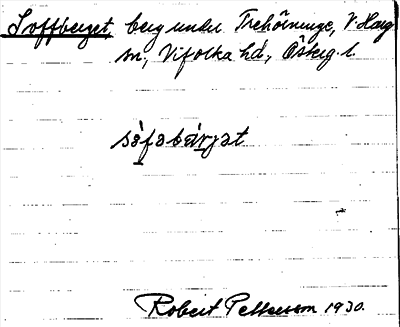 Soffberget, berg under Trehörninge, V. Harg
sn., Vifolka hd., Österg. l.
sɵ̀fəbæ̀rjət
Robert Pettersson 1930.